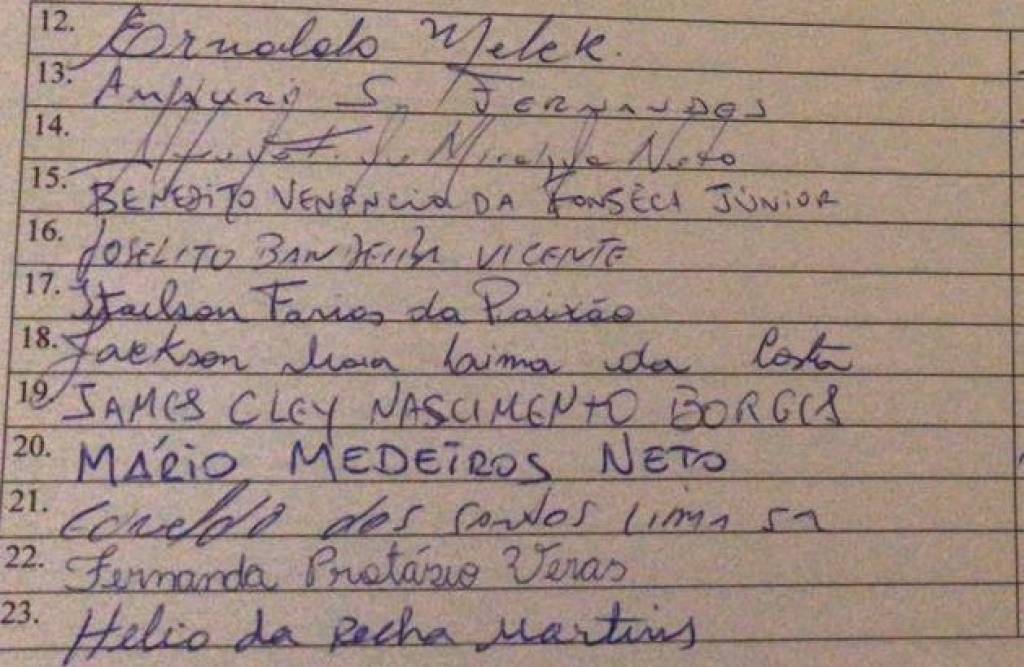 12. Ernaldo Melek.
13. S. FERNANDES
14. de Miranda Neto
15. BENEDITO VENÂNCIO DA FONSECA JÚNIOR
16. JOSELITO BANDEIRA VICENTE
17. Farias da Paixão
18. Jackson Maia Laima da Costa
19. JAMES CLEY NASCIMENTO BORGES
20. MÁRIO MEDEIROS NETO
21. dos Santos Lima
22. Fernanda Protázio Veras
23. Helio da Rocha Martins